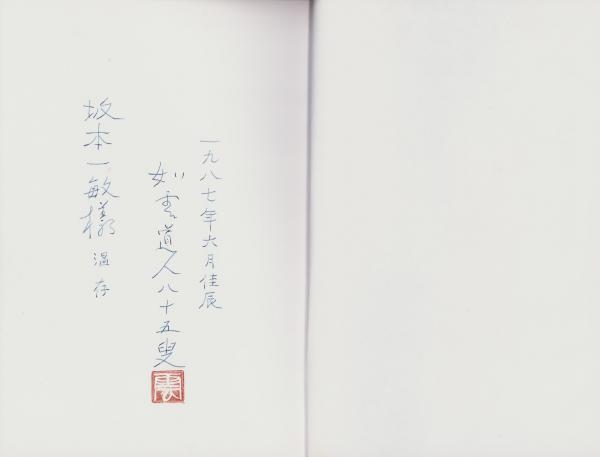 一九八七年六月佳辰
如雲道人八十五叟
坂本一敏様 温存
雲